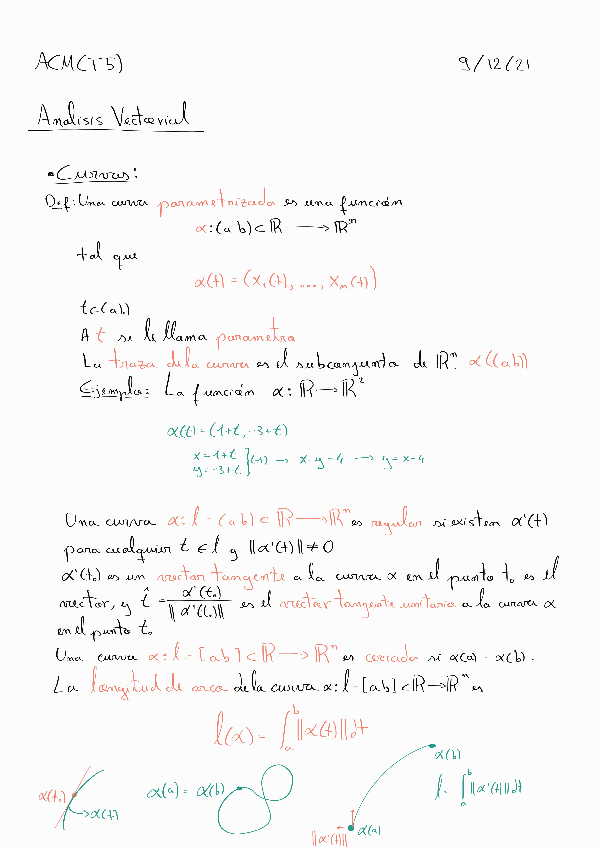 ACM(T5) 9/12/21
Analisis Vectorial
• Curvas:
Def: Una curva parametrizada es una función
α:(a b)⊂ℝ → ℝⁿ
tal que
α(t) = (x₁(t), ..., xₙ(t))
t∈(a,b)
A t se le llama parametro
La traza de la curva es el subconjunto de ℝⁿ. α((ab))
Ejemplo: La función α: ℝ → ℝ²
α(t) = (1+t, -3+t)
x = 1+t
y = -3+t } (-1) → x-y=4 → y = x-4
Una curva α: l - (ab) ⊂ ℝ → ℝⁿ es regular si existen α'(t)
para cualquier t ∈ l y ||α'(t)|| ≠ 0
α'(t₀) es un vector tangente a la curva α en el punto t₀ es el
vector, y t̂ = α'(t₀) / ||α'(t₀)|| es el vector tangente unitario a la curva α
en el punto t₀
Una curva α: l - [ab] ⊂ ℝ → ℝⁿ es cerrada si α(a) - α(b).
La longitud de arco de la curva α: l - [ab] ⊂ ℝ → ℝⁿ es
l(α) = ∫ₐᵇ ||α(t)|| dt
α(t₀) α(t)
α(a) = α(b)
α(b)
l - ∫ₐᵇ ||α'(t)|| dt
||α'(t)|| α(a)